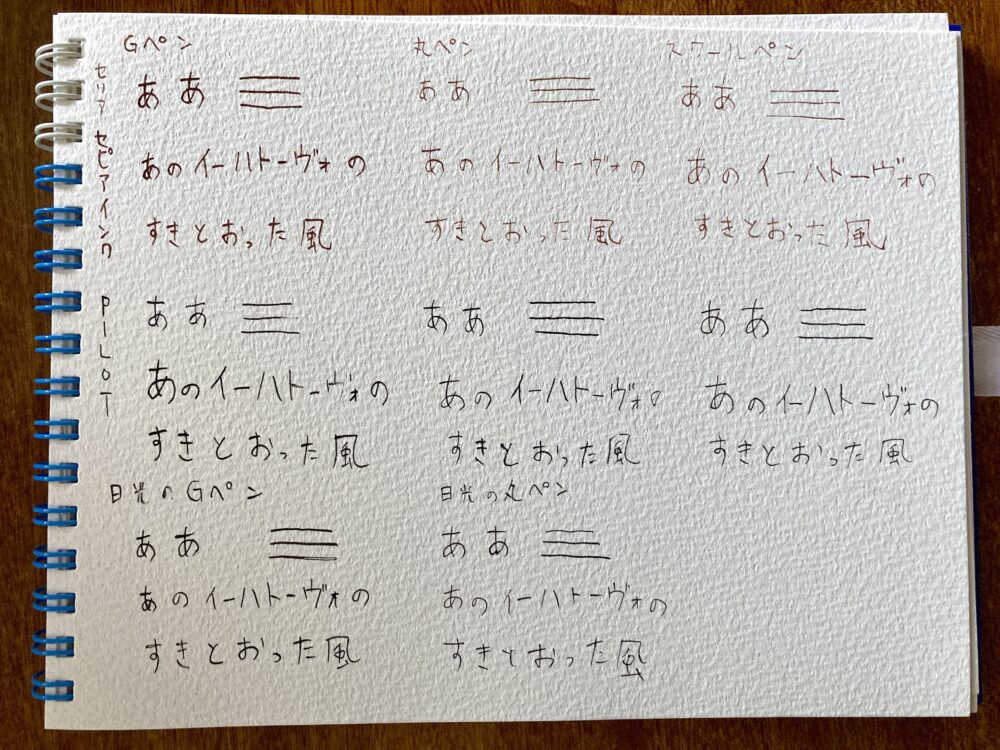 Gペン 丸ペン スクールペン
セリア セピアインク
ああ ああ ああ
あのイーハトーヴォの あのイーハトーヴォの あのイーハトーヴォの
すきとおった風 すきとおった風 すきとおった風
PILOT
ああ ああ ああ
あのイーハトーヴォの あのイーハトーヴォの あのイーハトーヴォの
すきとおった風 すきとおった風 すきとおった風
日光のGペン 日光の丸ペン
ああ ああ
あのイーハトーヴォの あのイーハトーヴォの
すきとおった風 すきとおった風